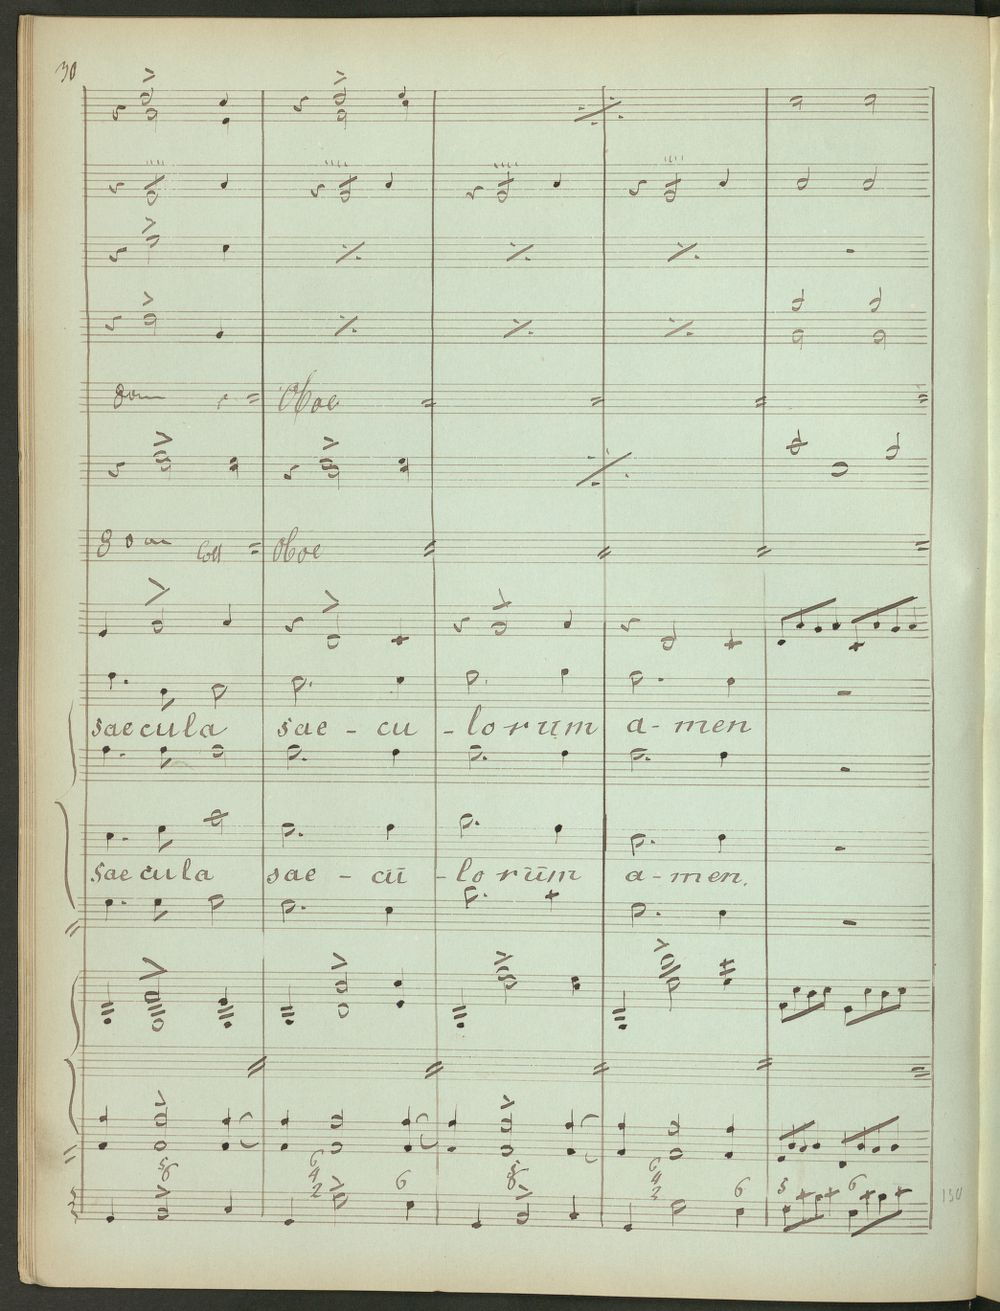 30
Oboe
Coll Oboe
saecula sae - cu - lorum a - men
saecula sae - cū - lo rūm a - men.
5 6
6 4 2
6
5 6
6 4 2
6
5
6
130